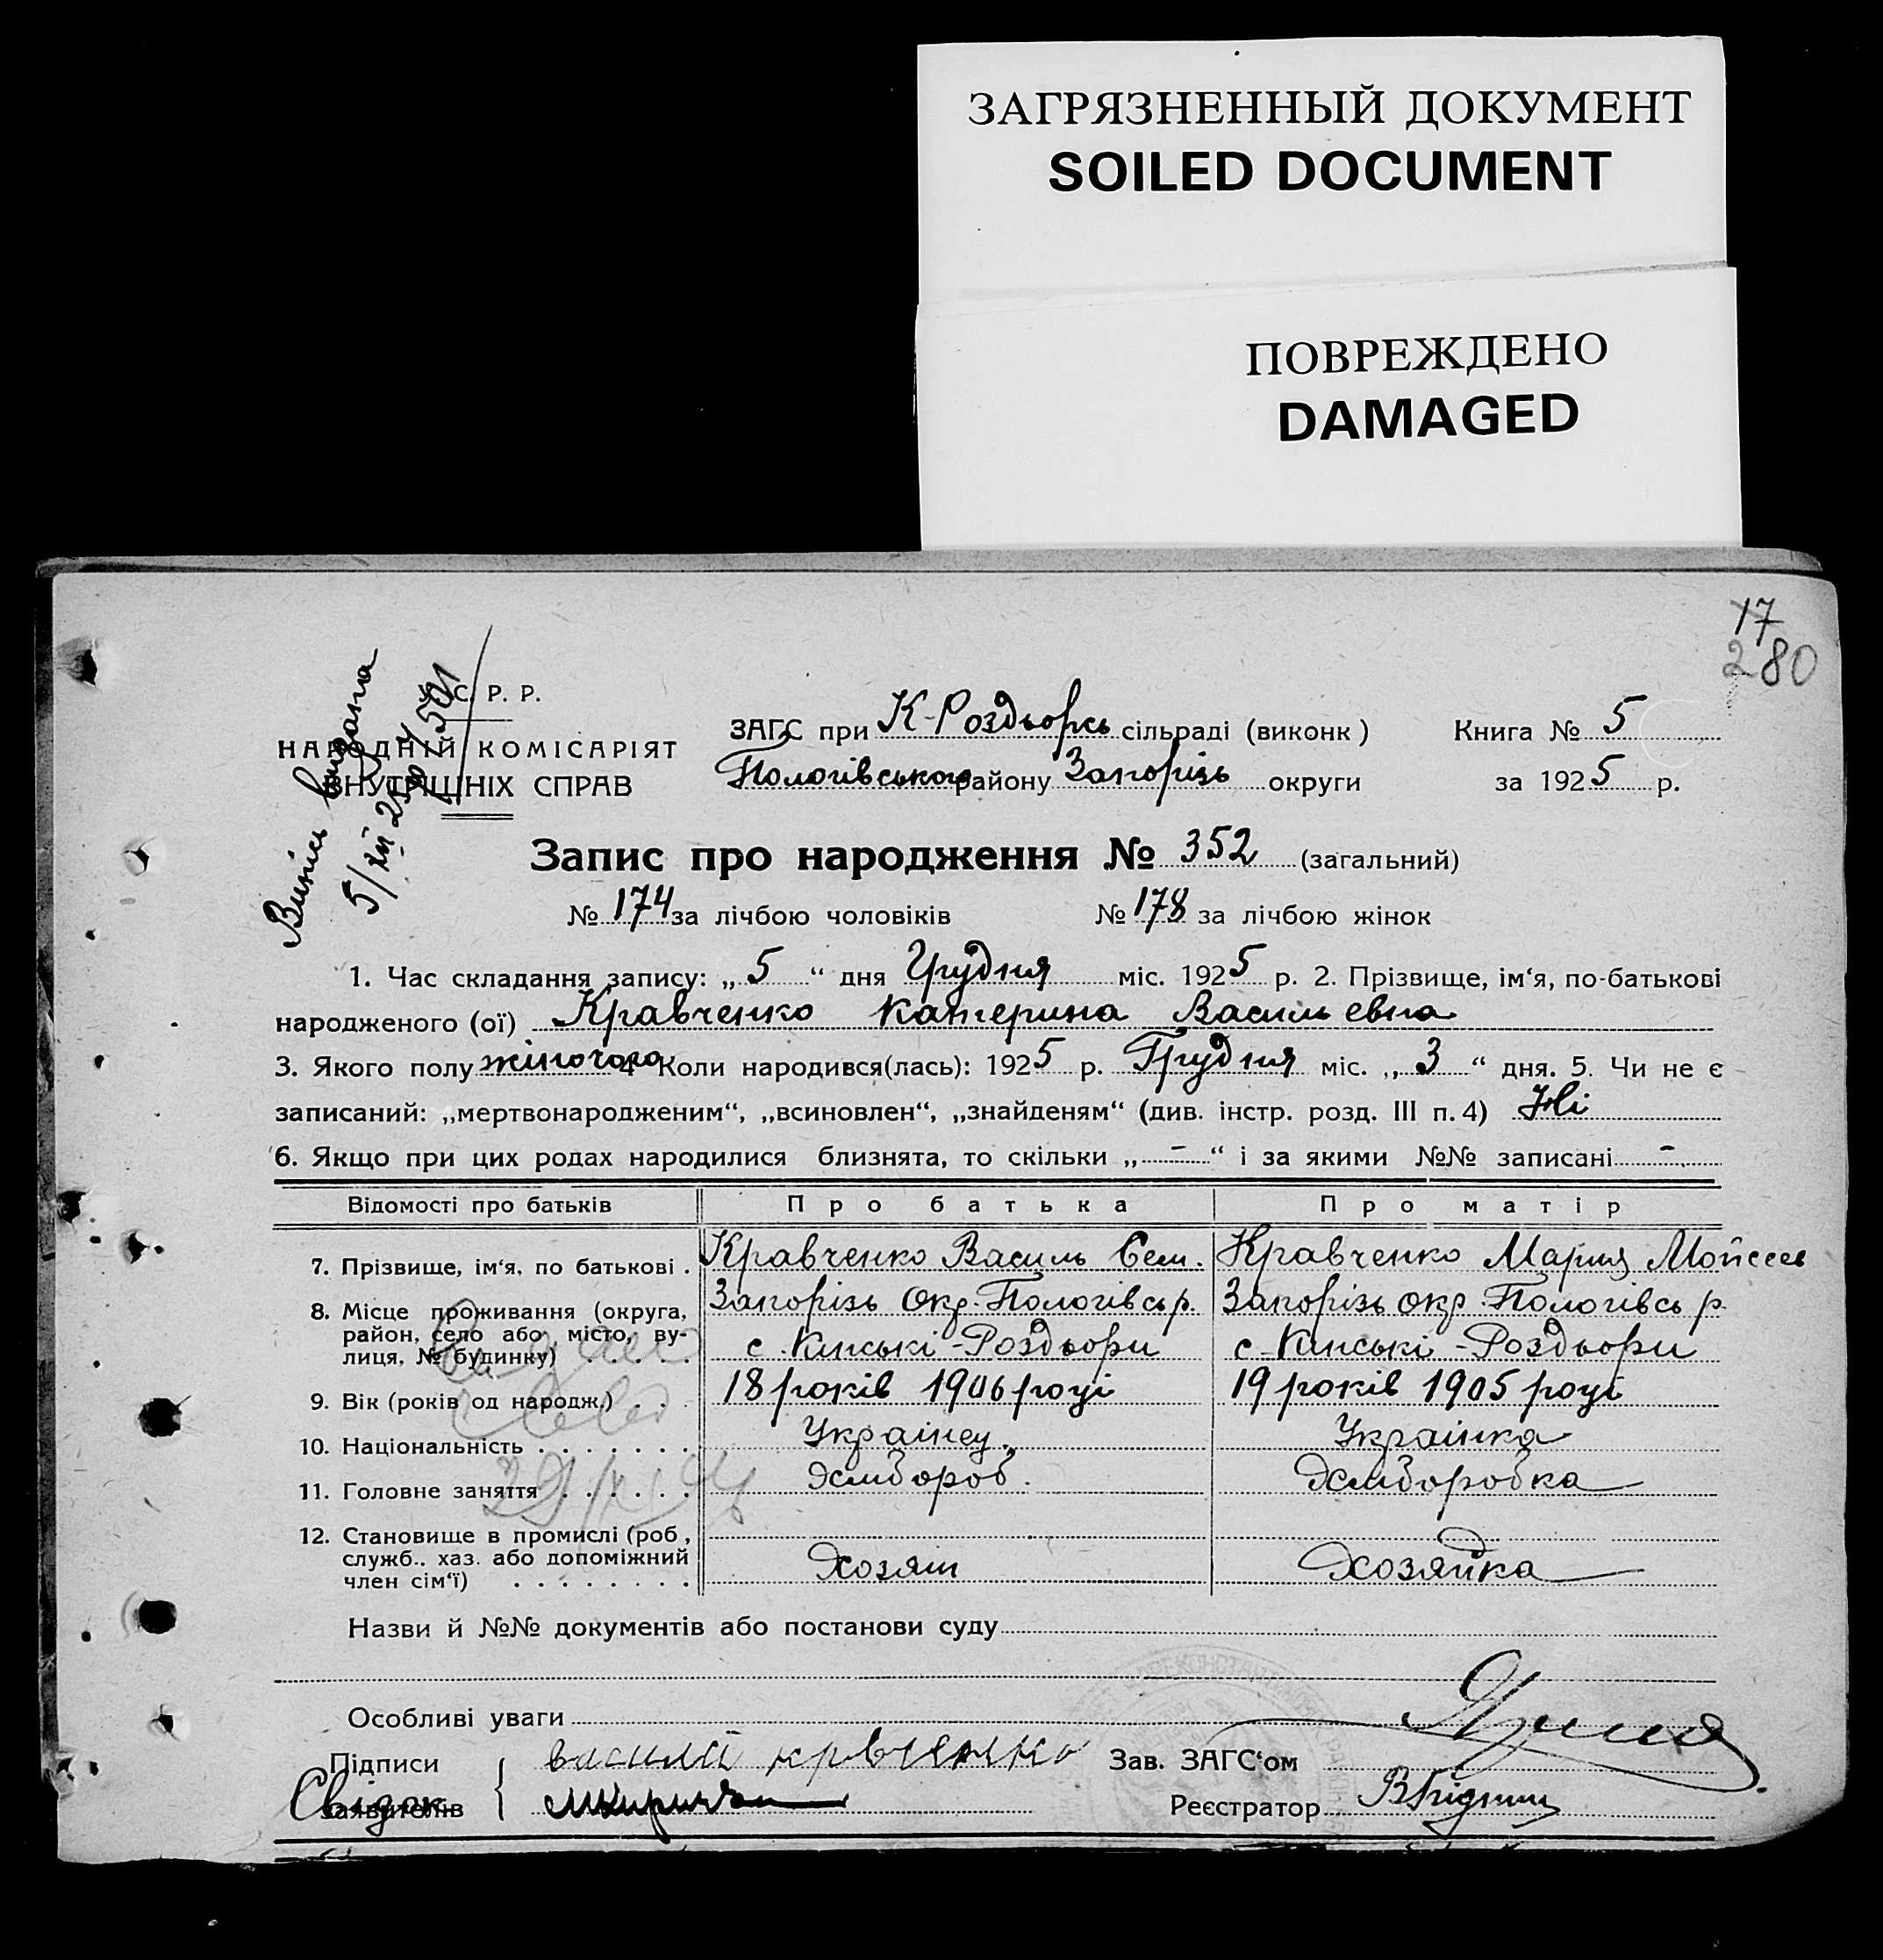 ЗАГРЯЗНЕННЫЙ ДОКУМЕНТ
SOILED DOCUMENT
ПОВРЕЖДЕНО
DAMAGED
17
280
У. С. Р. Р.
НАРОДНІЙ КОМІСАРІЯТ
ВНУТРІШНІХ СПРАВ
Випись видана
5/XII 25
ЗАГС при К-Роздорсь сільраді (виконк) Книга № 5
Пологівського району Запорізь округи за 1925 р.
Запис про народження № 352 (загальний)
№ 174 за лічбою чоловіків № 178 за лічбою жінок
1. Час складання запису: „5“ дня Грудня міс. 1925 р. 2. Прізвище, ім‘я, по-батькові
народженого (ої) Кравченко Катерина Васильевна
3. Якого полу жіночого 4 Коли народився(лась): 1925 р. Грудня міс. „3“ дня. 5. Чи не є
записаний: „мертвонародженим“, „всиновлен“, „знайденям“ (див. інстр. розд. III п. 4) Ні
6. Якщо при цих родах народилися близнята, то скільки „-“ і за якими №№ записані -
Відомості про батьків Про батька Про матір
7. Прізвище, ім‘я, по батькові . Кравченко Василь Сем. Кравченко Мария Мойсеев
8. Місце проживання (округа, Запорізь Окр. Пологівсь р. Запорізь окр. Пологівсь р.
район, село або місто, ву-
лиця, № будинку) . . . . . с. Кінські-Роздори с. Кінські-Роздори
9. Вік (років од народж.) . . . 18 років 1906 році 19 років 1905 році
10. Національність . . . . . . . Українец. Українка
11. Головне заняття . . . . . . Хлібороб. Хлиборобка
12. Становище в промислі (роб.,
служб., хаз. або допоміжний Хозяін Хозяйка
член сім‘ї) . . . . . . . .
Назви й №№ документів або постанови суду
Особливі уваги
Підписи василий кравченко Зав. ЗАГС‘ом
Свідок
заявителів Реєстратор